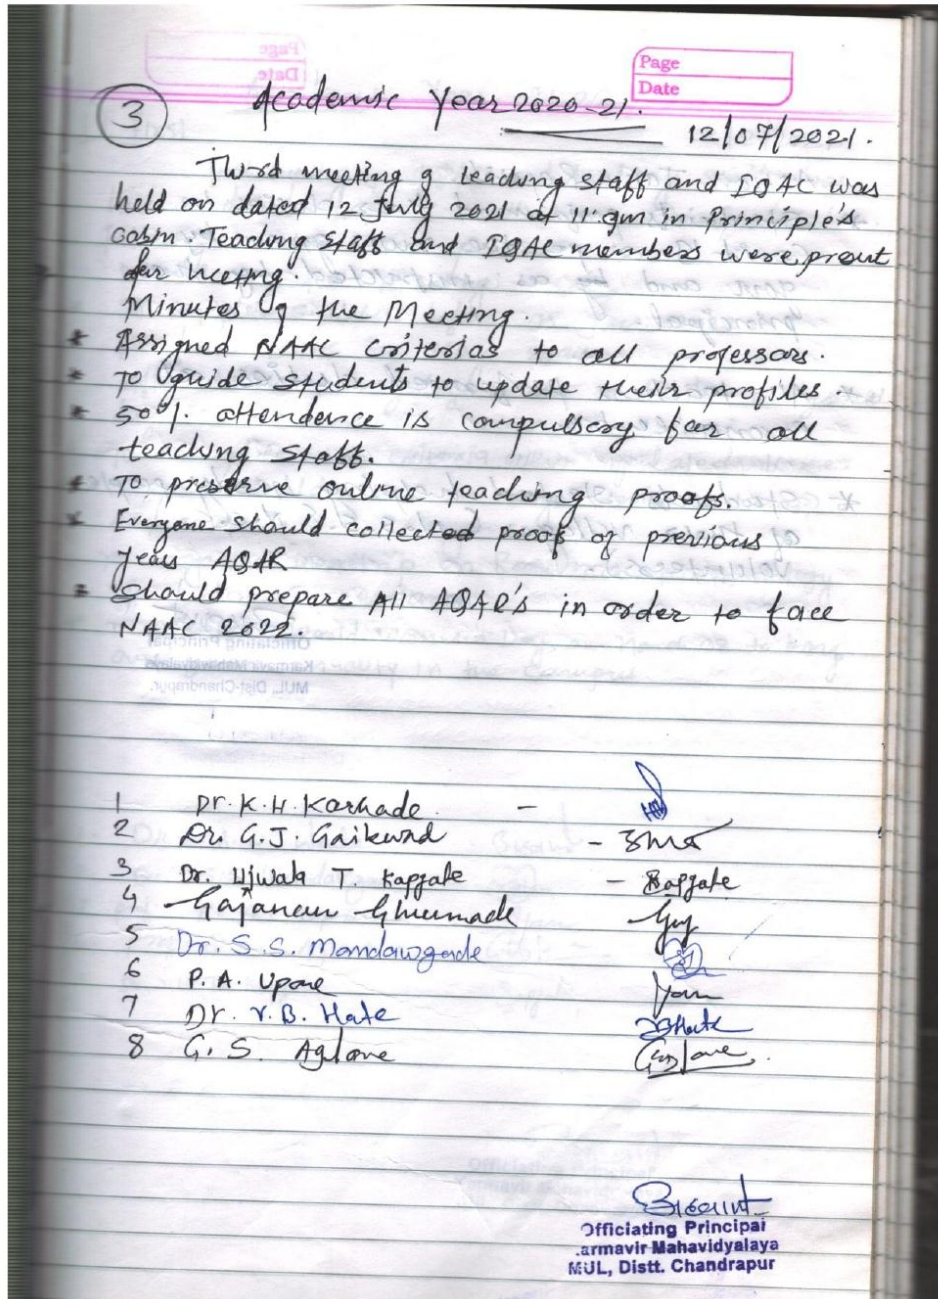 Page
Date
3
Academic Year 2020-21.
12/07/2021.
Third meeting of teaching staff and IQAC was
held on dated 12 July 2021 at 11:am in Principle's
cabin. Teaching staff and IQAC members were
for meeting.
Minutes of the Meeting.
* Assigned NAAC criterias to all professors.
* To guide students to update their profiles.
* 50%. attendence is compulsory for all
teaching staff.
* To preserve online teaching proofs.
* Everyone should collected proof of previous
years AQAR
* Should prepare All AQAR's in order to face
NAAC 2022.
1 Dr. K. H. Karhade -
2 Dr. G. J. Gaikwad -
3 Dr. Ujwala T. Kapgate - Kapgate
4 Gajanan Ghumade
5 Dr. S. S. Mandawgade
6 P. A. Upare
7 Dr. V. B. Hate
8 G. S. Aglave
Officiating Principal
armavir Mahavidyalaya
MUL, Distt. Chandrapur